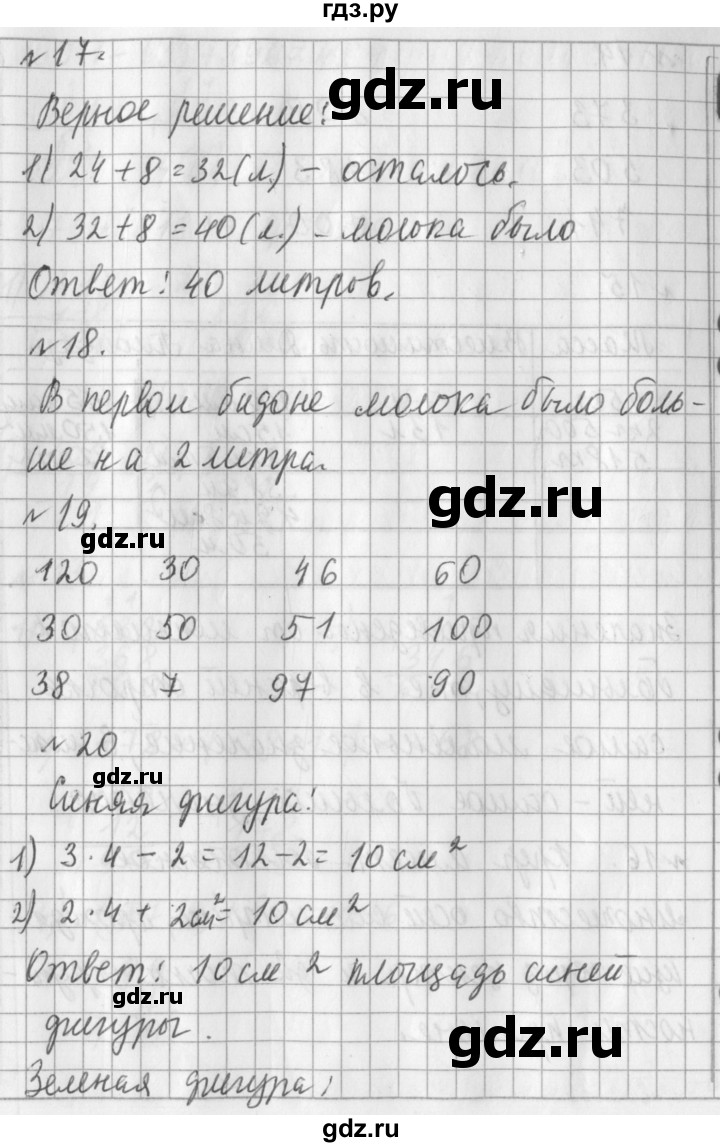 гдз.ру
№ 17.
гдз.ру
Верное решение:
1) 24+8=32(л.) – осталось.
2) 32+8=40(л.) – молока было
Ответ: 40 литров.
№ 18.
В первом бидоне молока было боль-
ше на 2 литра.
гдз.ру
№ 19.
гдз.ру
120 30 46 60
30 50 51 100
38 7 97 90
№ 20
гдз.ру
Синяя фигура:
1) 3·4 – 2 = 12–2= 10 см²
2) 2·4 + 2см²= 10 см²
Ответ: 10 см 2 площадь синей
гдз.ру
фигуры.
гдз.ру
Зеленая фигура:
гдз.ру